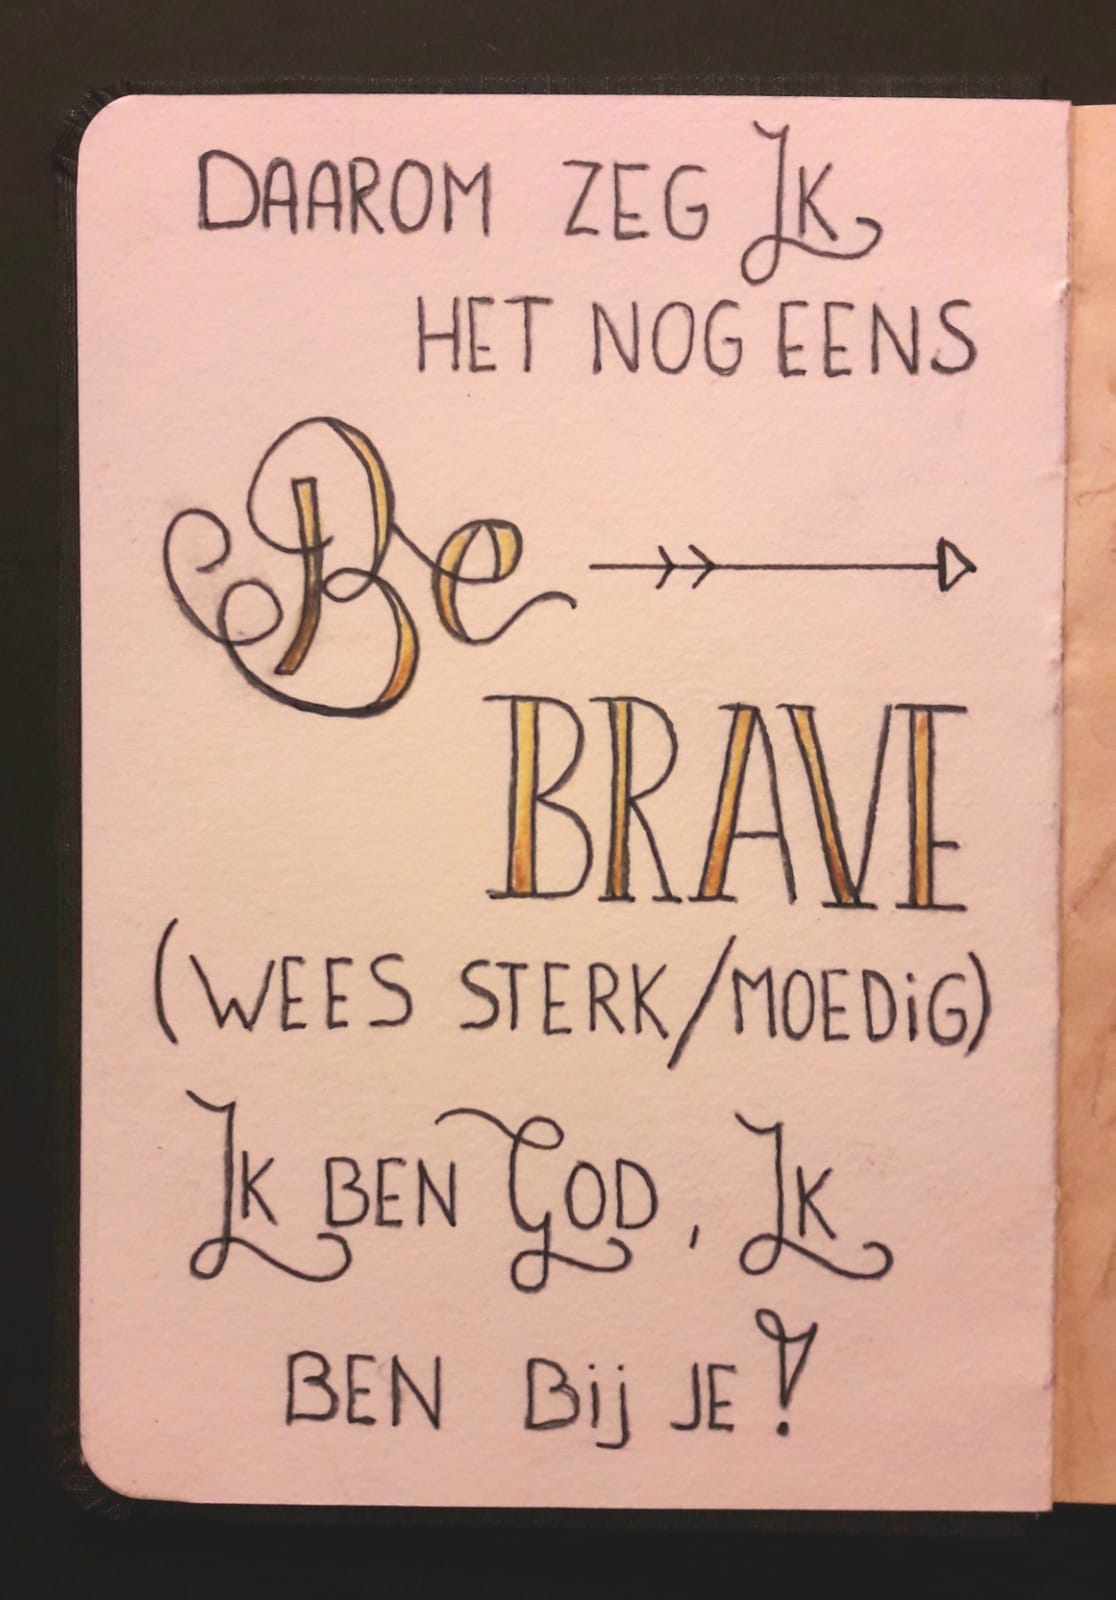 DAAROM ZEG IK
HET NOG EENS
Be
BRAVE
(WEES STERK/MOEDiG)
IK BEN GOD, IK
BEN Bij JE!